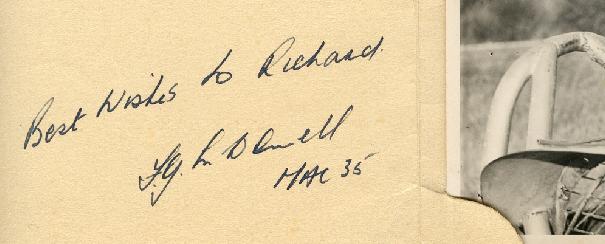 Best Wishes to Richard
MAC 35